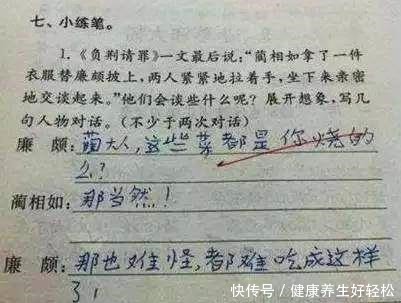 七、小练笔。
1.《负荆请罪》一文最后说:“蔺相如拿了一件
衣服替廉颇披上,两人紧紧地拉着手,坐下来亲密
地交谈起来。”他们会谈些什么呢?展开想象,写几
句人物对话。(不少于两次对话)
廉 颇:蔺大人,这些菜都是你烧的
么?
蔺相如:那当然!
廉 颇:那也难怪,都难吃成这样
了!
快传号/健康养生好轻松